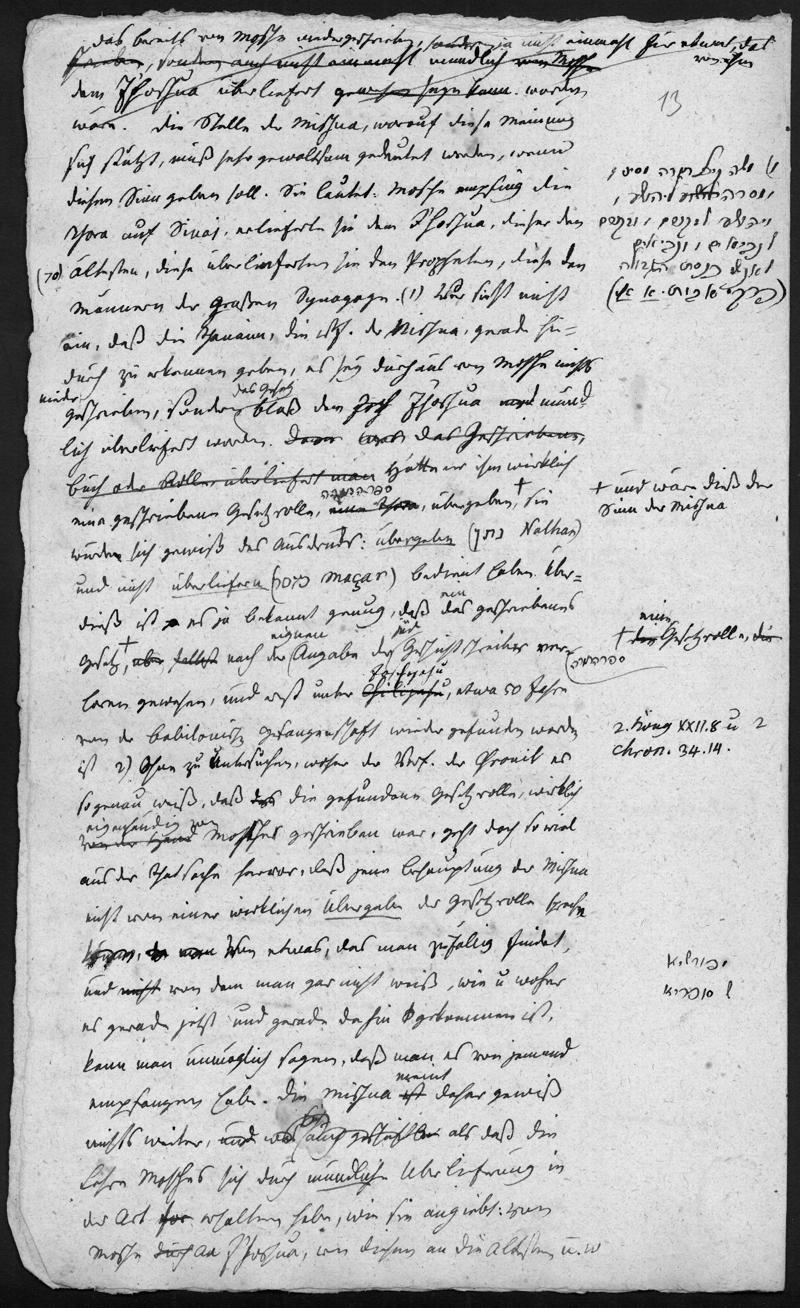 das bereits von Mosche niedergeschrieben, sondern ja nicht einmahl für etwas, das
sondern auch nicht einmahl mündlich von Mosche von ihm
dem Jehoschua überliefert gewesen seyn kann. worden
13
wäre. Die Stelle der Mischna, worauf diese Meinung
sich stützt, muß sehr gewaltsam gedeutet werden, wenn
diesen Sinn geben soll. Sie lautet: Mosche empfing die
Thora auf Sinai, überlieferte sie dem Jehoschua, dieser den
(70) Ältesten, diese überlieferten sie den Propheten, diese den
Männern der großen Synagoge. (1) Wer sieht nicht
ein, daß die Thanaim, die Vrf. der Mischna, gerade hie-
durch zu erkennen geben, es sey durchaus von Mosche nichts
nieder
geschrieben, sondern das Gesetz bloß dem Jehoschua münd-
lich überliefert worden. das Geschriebene,
Buch oder Rolle überliefert man Hätte er ihm wirklich
eine geschriebene Gesetzrolle, ספר התורה, übergeben, † Sie
würden sich gewiß des Ausdrucks: übergeben (נתן Nathan)
und nicht überliefern (מסר maçar) bedient haben. Über-
dieß ist es ja bekannt genug, daß das geschriebene
Gesetz, † nach der eignen Angabe der Geschichtschreiber ver-
loren gewesen, und erst unter Joschijahu, etwa 50 Jahre
vor der babilonisch. Gefangenschaft wieder gefunden worden
ist 2) Ohne zu untersuchen, woher der Verf. der Chronik es
so genau weiß, daß die gefundene Gesetzrolle, wirklich
eigenhändig von
von der Hand Mosches geschrieben war, geht doch so viel
aus der Thatsache hervor, daß jene Behauptung der Mischna
nicht von einer wirklichen Übergabe der Gesetzrolle sprechen
Von etwas, das man zufälig findet,
und nicht von dem man gar nicht weiß, wie u woher
es gerade jetzt und gerade dahin gekommen ist,
kann man unmöglich sagen, daß man es von jemand
empfangen habe. Die Mischna meint daher gewiß
nichts weiter, als daß die
Lehre Mosches sich durch mündliche Überlieferung in
der Art erhalten habe, wie sie angiebt: von
Mosche an Jehoschua, von diesem an die Ältesten u.w
1) משה קיבל תורה מסיני
ומסרה ליהושע,
ויהושע לזקנים, וזקנים
לנביאים, ונביאים
לאנשי כנסת הגדולה
(פרקי אבות א א)
† und wäre dieß der
Sinn der Mischna
† eine Gesetzrolle, die
ספר התורה
2. König XXII.8 u 2
Chron. 34.14.